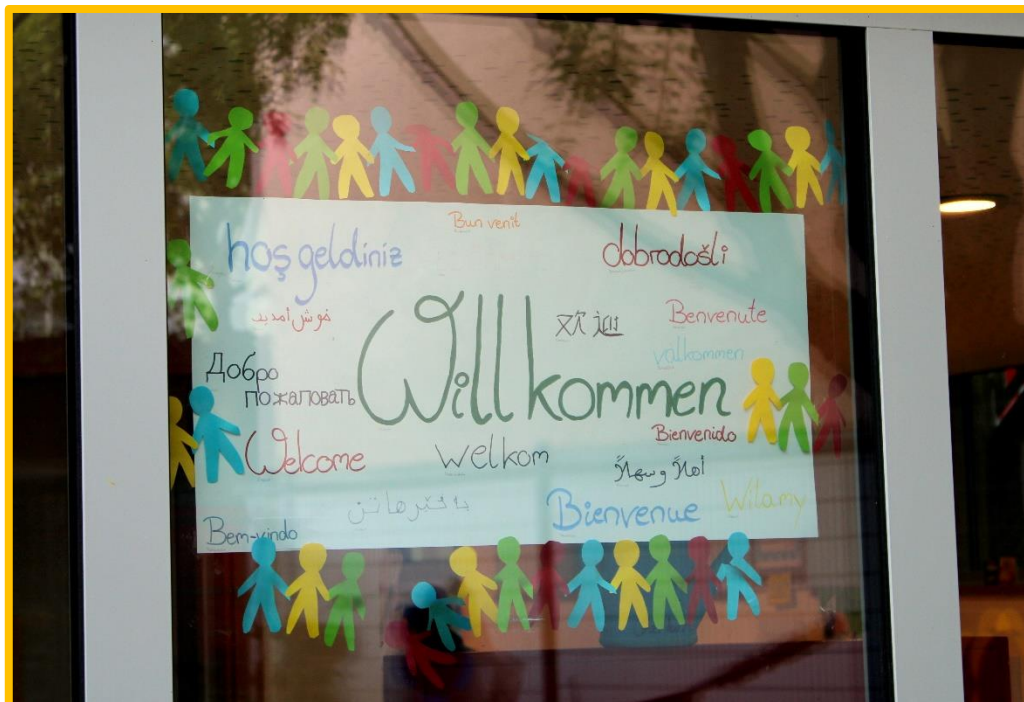 Bun venit
hoş geldiniz
dobrodošli
خوش آمدید
Willkommen
欢迎
Benvenute
välkommen
Добро
пожаловать
Bienvenido
Welcome
welkom
أهلاً وسهلاً
Witamy
Bienvenue
Bem-vindo